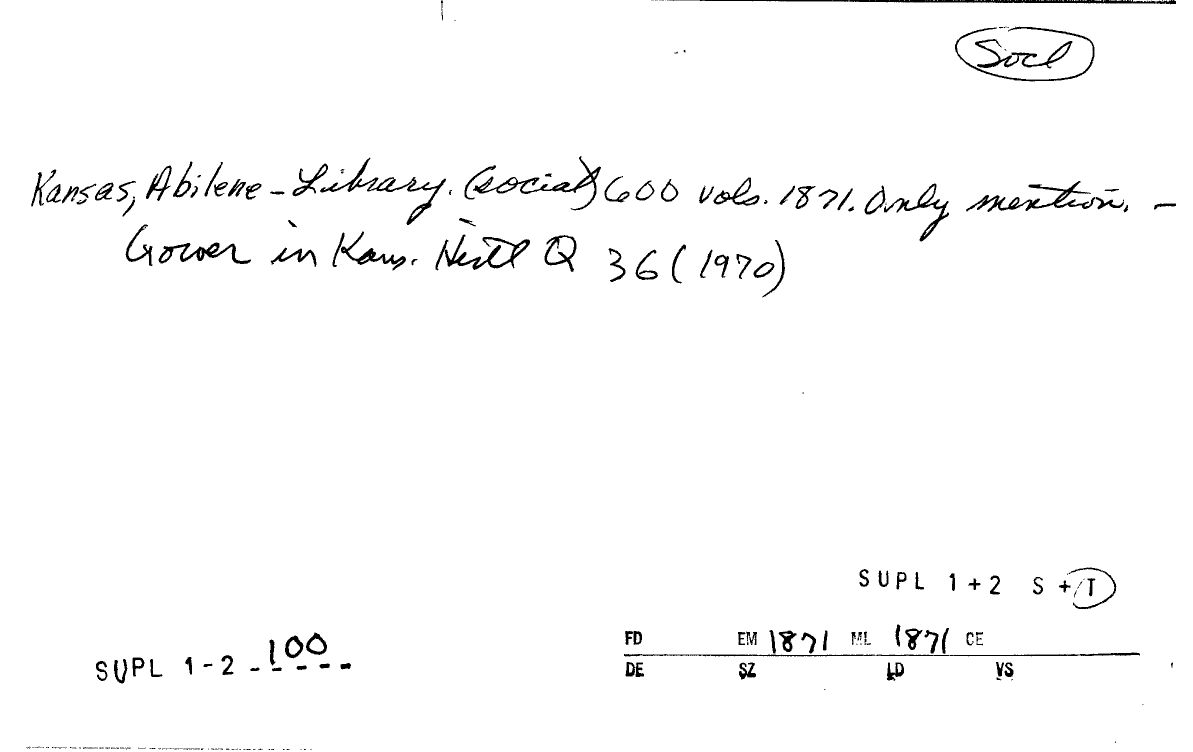 Socl
Kansas, Abilene - Library. (social) 600 vols. 1871. Only mention. -
Gower in Kans. Histl Q 36 (1970)
SUPL 1+2 S+T
SUPL 1-2 - 100 - - - -
FD EM 1871 ML 1871 CE
DE SZ LD VS